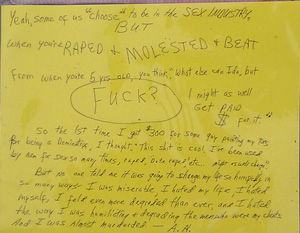 Yeah, some of us "choose" to be in the SEX INDUSTRY,
BUT
When you're RAPED & MOLESTED & BEAT
From when you're 5 yrs old, you think, "What else can I do, but
FUCK?
I might as well
Get PAID
$ for it."
So the 1st time I got $300 for some guy
being a Dominatrix, I thought, "This shit is cool, I've been used
by men for sex so many times, raped,
But no one told me it was going to change my life so horribly, in
so many ways. I was miserable, I hated my life, I hated
myself, I felt even more degraded than ever, and I hated
the way I was humiliating & degrading the men who were my
And I was almost murdered. — A.R.